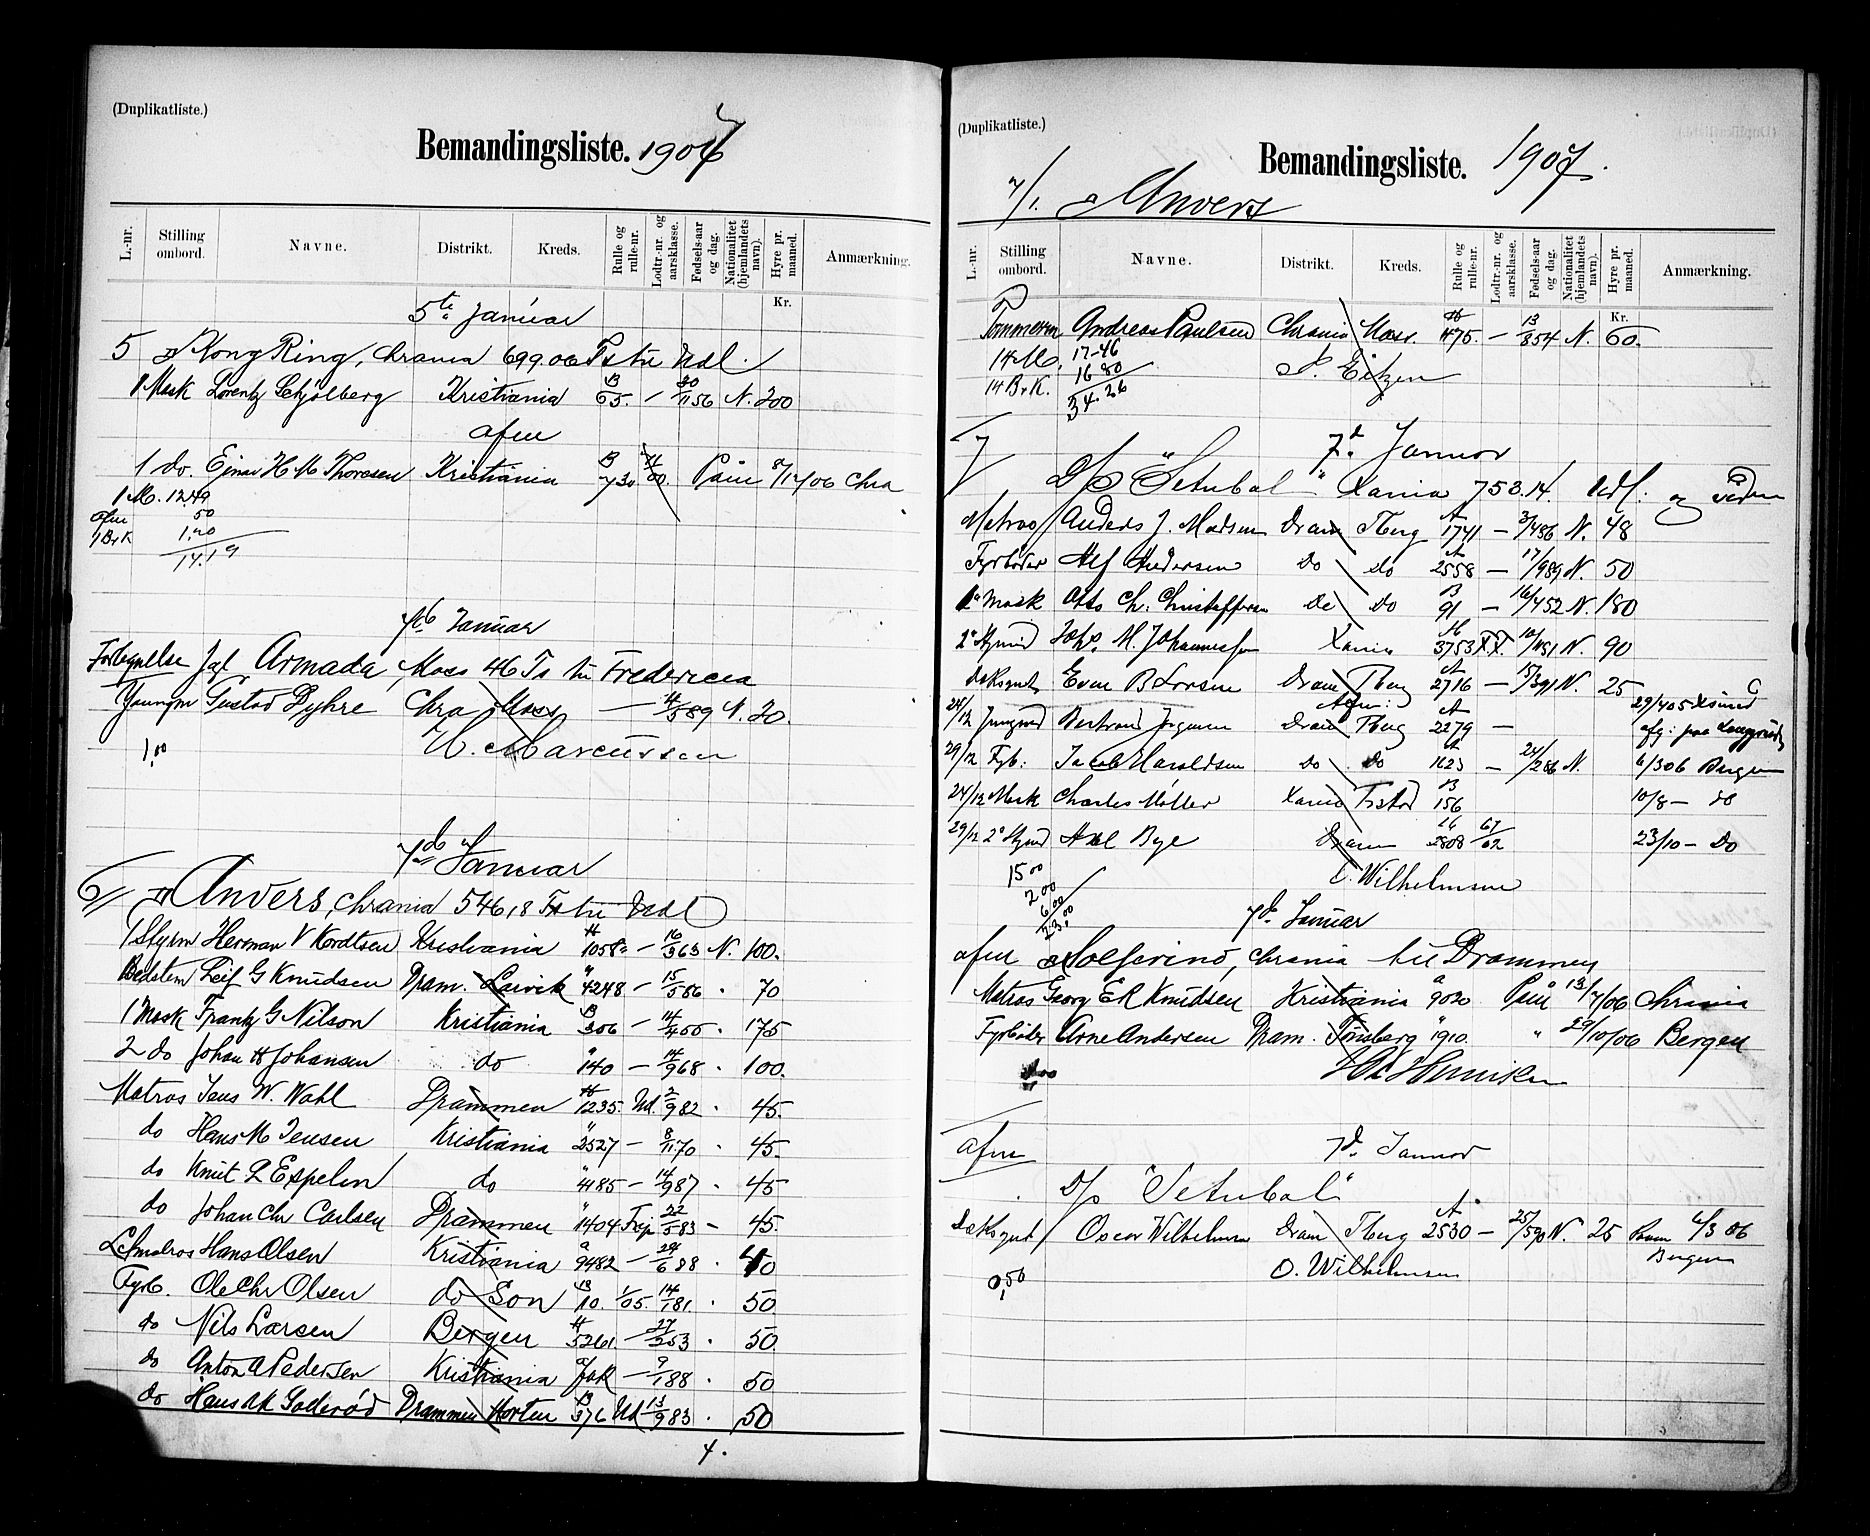 (Duplikatliste.)
Bemandingsliste. 1907
L.-nr. Stilling ombord. Navne. Distrikt. Kreds. Rulle og rulle-nr. Lodtr.-nr. og aarsklasse. Fødsels-aar og dag. Nationalitet (hjemlandets navn). Hyre pr. maaned. Anmærkning.
Kr.
5te Januar
5 Kong Ring, Chrania 699.06 Ts til Udl.
1 Mask Lorentz Schjølberg Kristiania B 65. — 20/11 56 N. 200
afm
1 do. Ejnar H M Thoresen Kristiania B 730 Paam 8/11 06 Chra
1 M. 12.49
afm 50
1 B & K 1.20
14.19
Januar
Forlegnelse Jgt Armada, Moss 46 Ts til Fredericia
Youngm Gustav Dyhre Chra Moss — 14/5 89 N. 20.
1,00
H. Marcussen
7de Januar
6 Anvers, Chrania 546,18 Ts til Udl
1 Styrm Herman V Kordtsen Kristiania H 1058 — 16/3 63 N. 100.
Bedstem Leif G Knudsen Dram. Larvik " 4248 — 15/5 86 . 70
1 Mask Frantz G Nilson Kristiania B 306 — 14/4 55 . 175
2 do Johan H Johansen do " 140 — 14/9 68 . 100.
Matros Jens W. Wahl Drammen H 1235. Ud. 2/9 82 . 45.
do Hans M Jensen Kristiania " 2527 — 8/11 70 . 45.
do Knut L Espelin do " 4185 — 14/9 87 . 45
do Johan Chr Carlsen Drammen " 1404 22/5 83 — 45.
Lmatros Hans Olsen Kristiania a 9482 — 24/6 88 . 40
Fyrb. Ole Chr Olsen do Son B 10. 1/05. 14/1 81. . 50.
do Nils Larsen Bergen H 5261. — 27/2 53 . 50
do Anton A Pedersen Kristiania — 9/1 88 . 50
do Hans AK Goderød Drammen Horten B 376 Ud 13/9 83 . 50
4.
(Duplikatliste.)
Bemandingsliste. 1907.
7/1. Anvers
L.-nr. Stilling ombord. Navne. Distrikt. Kreds. Rulle og rulle-nr. Lodtr.-nr. og aarsklasse. Fødsels-aar og dag. Nationalitet (hjemlandets navn). Hyre pr. maaned. Anmærkning.
Kr.
Tømmerm Andreas Paulsen Chrania Moss. 1175. — 13/8 54 N. 60.
14 M. 17-46
14 B & K. 16 80
34.26
S. Eitzen
7d. Januar
7 D/S "Setubal" Xania 753.14. Udl: og videre
Matros Anders J. Madsen Dram Tbrg A 1741 — 3/4 86 N. 48
Fyrbøder Alf Andersen Do Do A 2558 — 17/9 89 N. 50
1' Mask Otto Ch. Christoffersen Do Do B 91 — 16/4 52 N. 180
2' Styrmd Johs. M. Johannessen Xania H 3753 XX. 10/11 51 N. 90
Deksgut Even B Larsen Dram Tbrg A 2716 — 15/3 91 N. 25
Afm:
24/12 Jungmd Bertrand Jørgensen Dram Tbrg A 2279 — 29/4 05
29/12 Fyrb: Jacob Haraldsen Do Do A 1623 — 24/2 86 N. 6/3 06 Bergen
24/12 Mask Charles Møller Xania B 156 10/8 — do
29/12 2' Styrmd Axel Bye Dram 2808 67/62 23/10 — Do
15 00
2 00
6 00
23,00
O. Wilhelmsen
7d. Januar
afm Solferino, Chrania til Drammen
Matros Georg E R Knudsen Kristiania a 9020 Paam 13/7/06 Chrania
Fyrbøder Arne Andersen Dram. Tønsberg " 1910. " 29/10/06 Bergen
afm 7d. Januar
D/S "Setubal"
Deksgut Oscar Wilhelmsen Dram Tbrg A 2530 — 25/5 90 N. 25 Paam 6/3 06 Bergen
0,50
O. Wilhelmsen